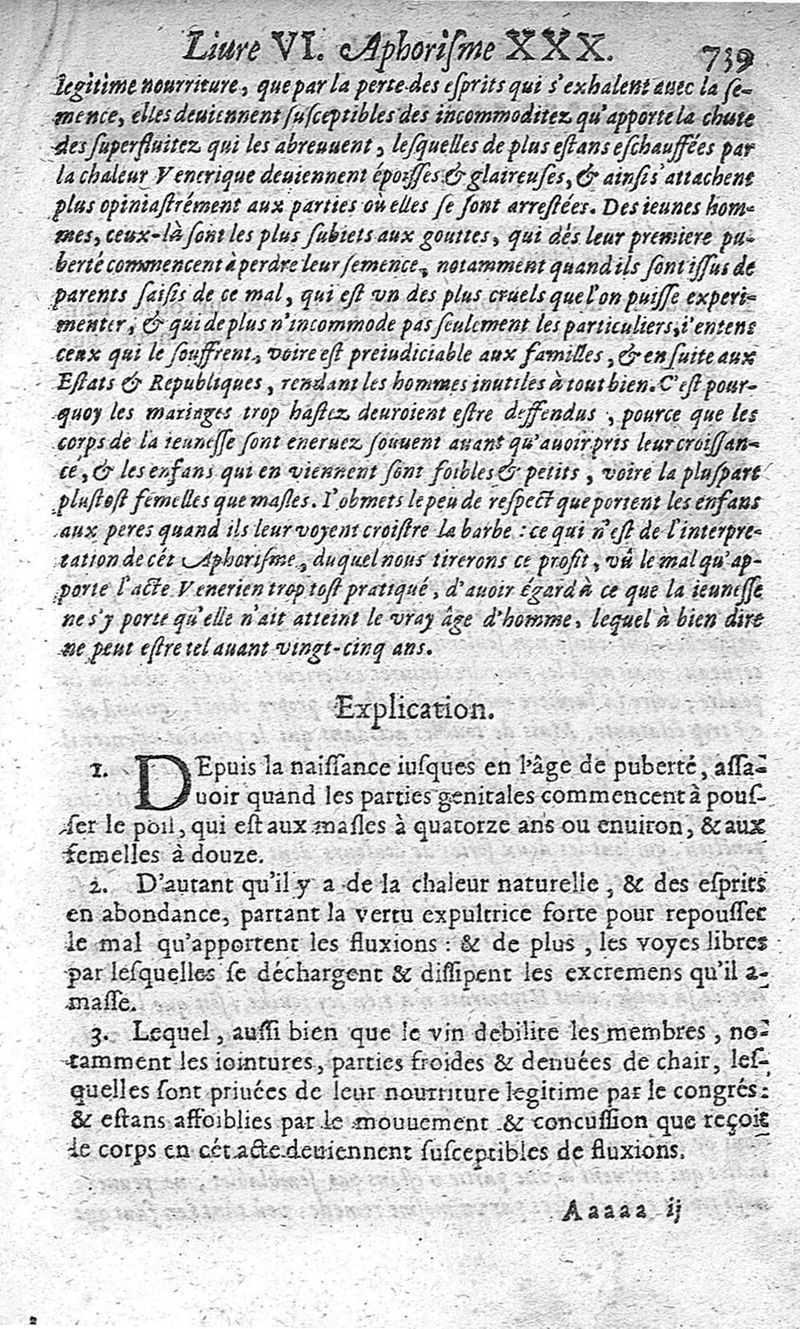 Liure VI. Aphoriſme XXX. 739
legitime nourriture, que par la perte des eſprits qui s'exhalent auec la ſe-
mence, elles deuiennent ſuſceptibles des incommoditez qu'apporte la chute
des ſuperfluitez qui les abreuuent, leſquelles de plus eſtans eſchauffées par
la chaleur Venerique deuiennent époiſſes & glaireuſes, & ainſis attachent
plus opiniaſtrément aux parties où elles ſe ſont arreſtées. Des ieunes hom-
mes, ceux-là ſont les plus ſubiets aux gouttes, qui dés leur premiere pu-
berté commencent à perdre leur ſemence, notamment quand ils ſont iſſus de
parents ſaiſis de ce mal, qui eſt vn des plus cruels que l'on puiſſe experi-
menter, & qui de plus n'incommode pas ſeulement les particuliers, i'entens
ceux qui le ſouffrent, voire eſt preiudiciable aux familles, & en ſuite aux
Eſtats & Republiques, rendant les hommes inutiles à tout bien. C'eſt pour-
quoy les mariages trop haſtez deuroient eſtre deffendus, pource que les
corps de la ieuneſſe ſont eneruez ſouuent auant qu'auoir pris leur croiſſan-
ce, & les enfans qui en viennent ſont foibles & petits, voire la pluſpart
pluſtoſt femelles que maſles. I'obmets le peu de reſpect que portent les enfans
aux peres quand ils leur voyent croiſtre la barbe : ce qui n'eſt de l'interpre-
tation de cét Aphoriſme, duquel nous tirerons ce profit, vû le mal qu'ap-
porte l'acte Venerien trop toſt prattiqué, d'auoir égard à ce que la ieuneſſe
ne s'y porte qu'elle n'ait atteint le vray âge d'homme, lequel à bien dire
ne peut eſtre tel auant vingt-cinq ans.
Explication.
1. DEpuis la naiſſance iuſques en l'âge de puberté, aſſa-
uoir quand les parties genitales commencent à pouſ-
ſer le poil, qui eſt aux maſles à quatorze ans ou enuiron, & aux
femelles à douze.
2. D'autant qu'il y a de la chaleur naturelle, & des eſprits
en abondance, partant la vertu expultrice forte pour repouſſer
le mal qu'apportent les fluxions : & de plus, les voyes libres
par leſquelles ſe déchargent & diſſipent les excremens qu'il a-
maſſe.
3. Lequel, auſſi bien que le vin debilite les membres, no-
tamment les iointures, parties froides & denuées de chair, leſ-
quelles ſont priuées de leur nourriture legitime par le congrés :
& eſtans affoiblies par le mouuement & concuſſion que reçoit
le corps en cét acte deuiennent ſuſceptibles de fluxions.
Aaaaa ij